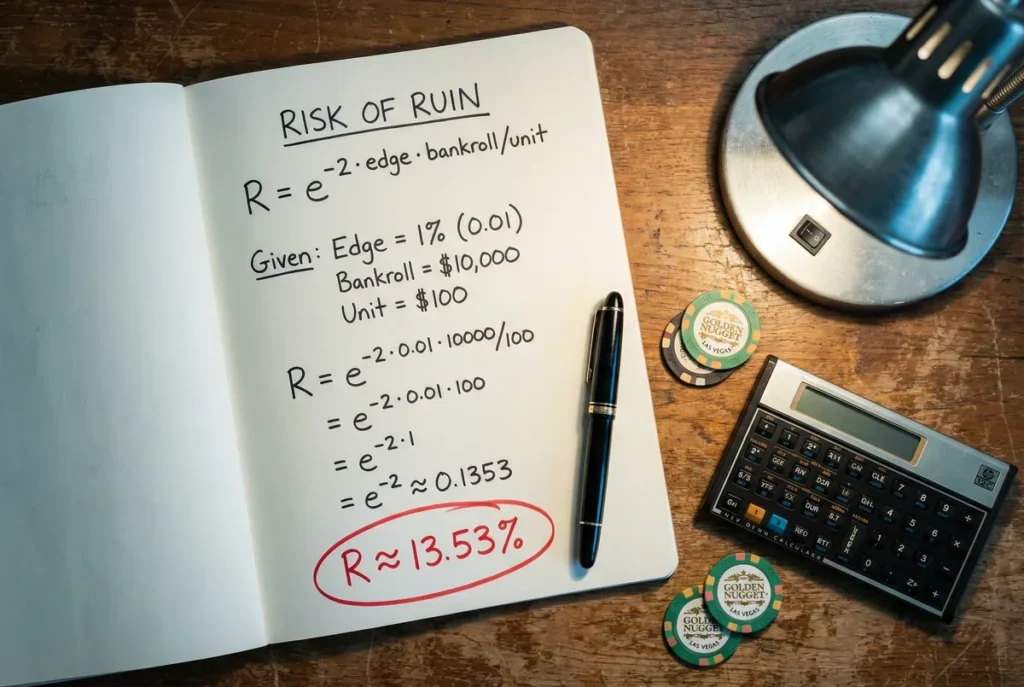 RISK OF RUIN
R = e^-2·edge·bankroll/unit
Given: Edge = 1% (0.01)
Bankroll = $10,000
Unit = $100
R = e^-2·0.01·10000/100
= e^-2·0.01·100
= e^-2·1
= e^-2 ≈ 0.1353
R ≈ 13.53%
GOLDEN
NUGGET
LAS VEGAS
hp
GOLDEN
NUGGET
LAS VEGAS
LAS VEGAS